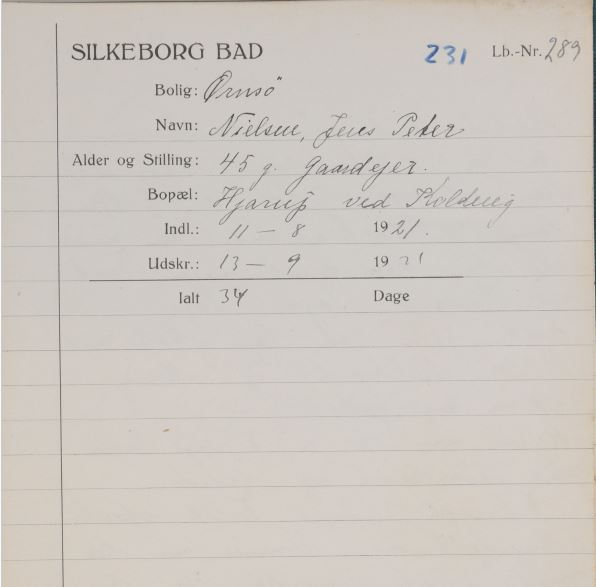 SILKEBORG BAD 231 Lb.-Nr. 289
Bolig: Ørnsö
Navn: Nielsen, Jens Peter
Alder og Stilling: 45 g. Gaardejer.
Bopæl: Hjarup ved Kolding
Indl.: 11 - 8 1921.
Udskr.: 13 - 9 1921
Ialt 34 Dage